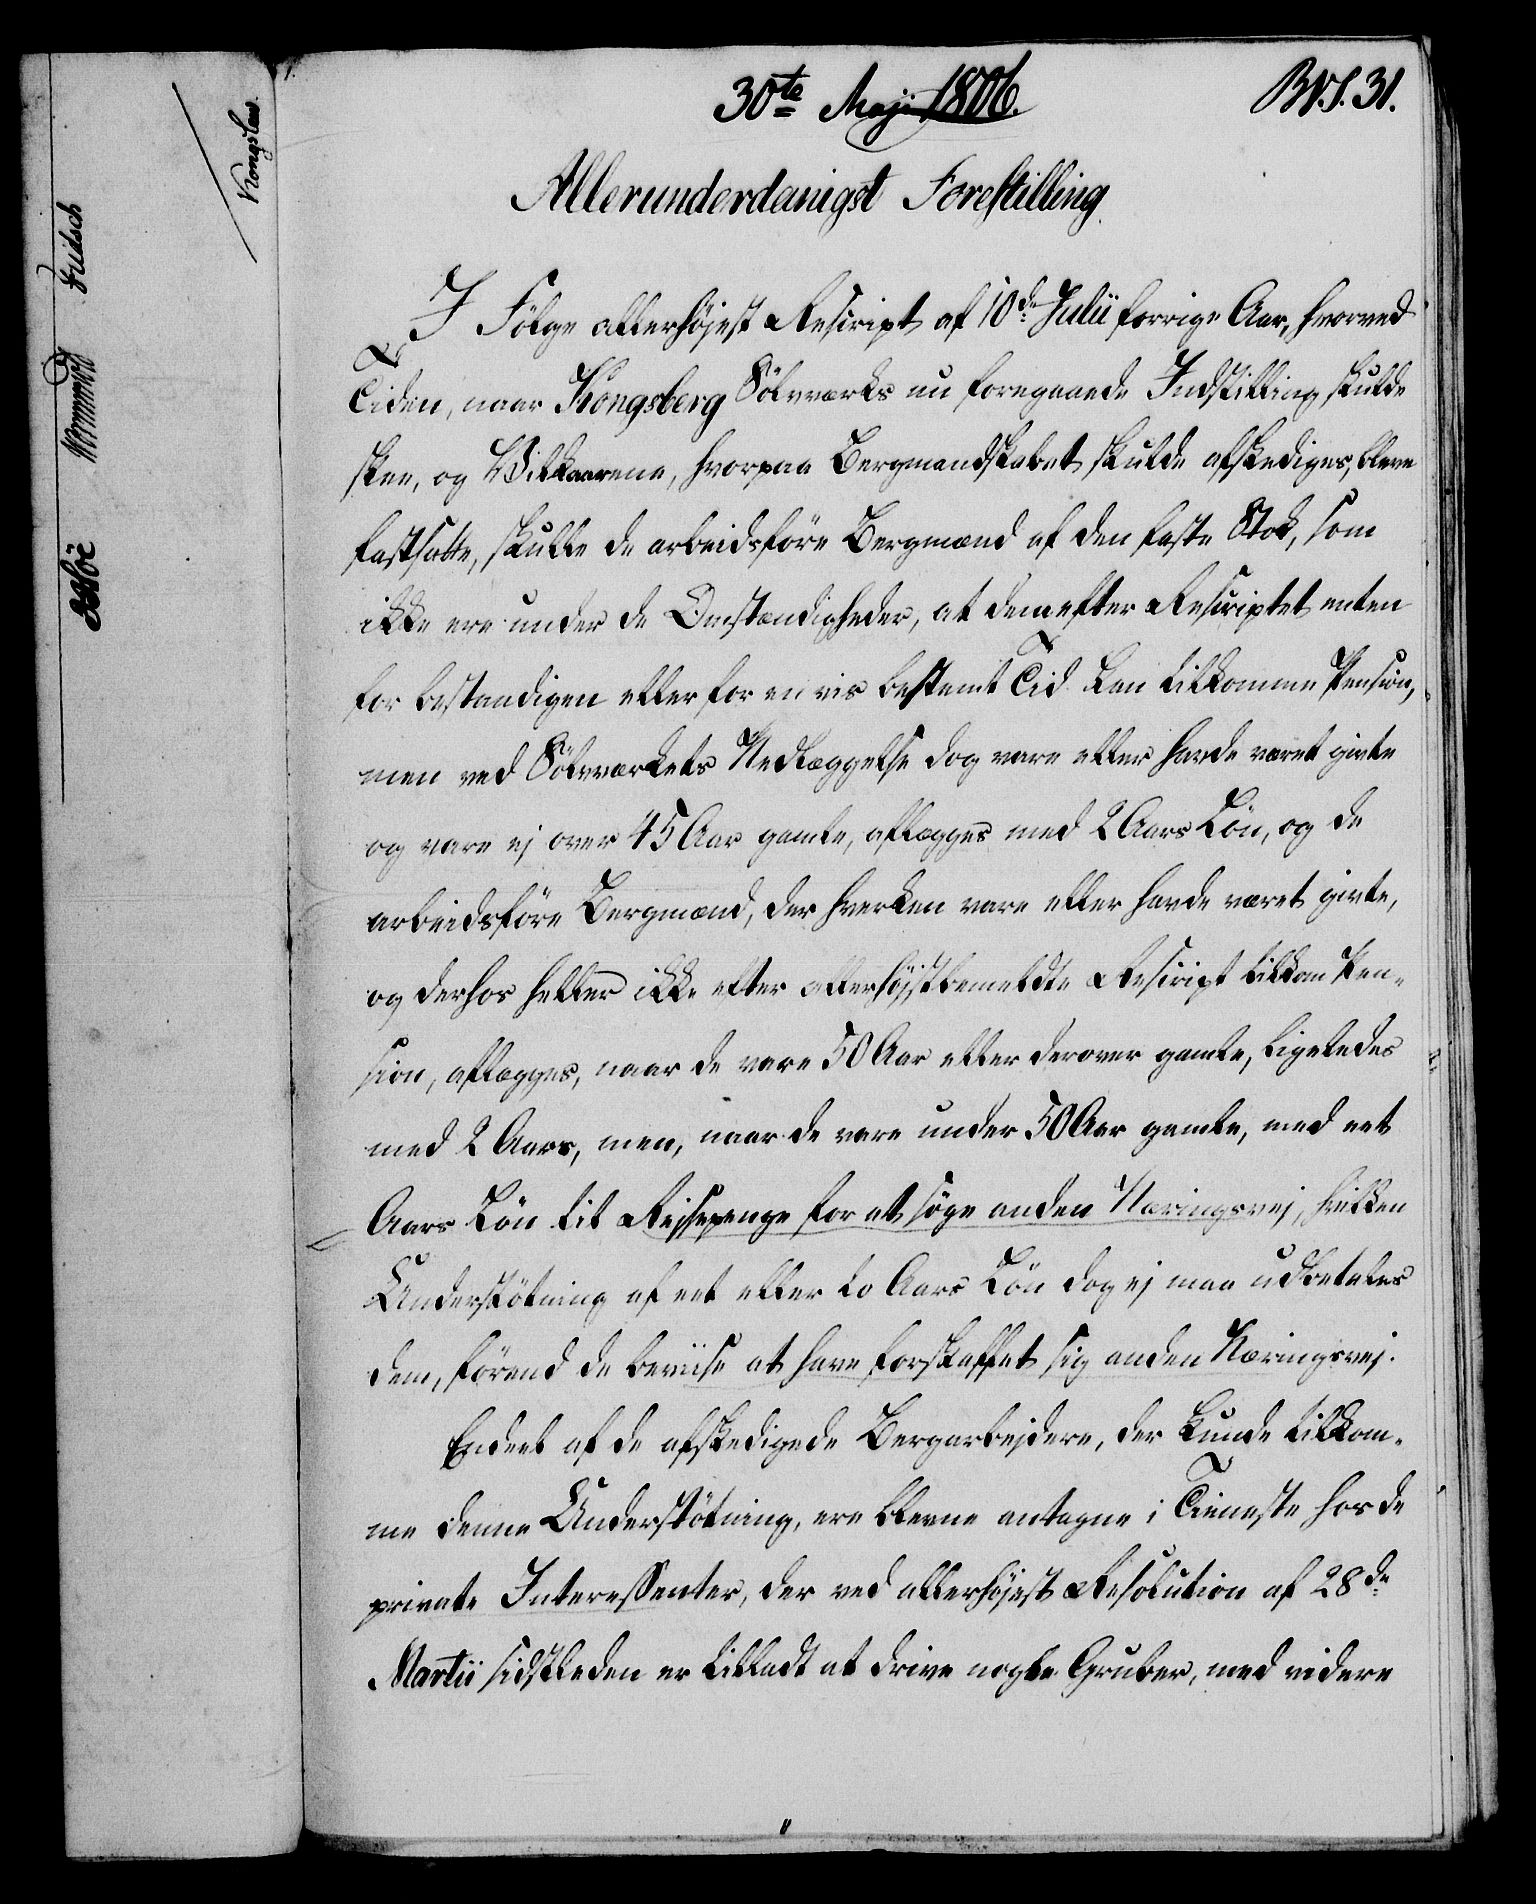 30te Maji 1806.
B N. S. 31.
Allerunderdanigst Forestilling.
I Følge allerhøjest Rescript af 10de Julii forrige Aar, hvorved
Tiden, naar Kongsberg Sølvværks nu foregaaede Indstilling skulde
skee, og Vilkaarene, hvorpaa Bergmandskabet skulde afskediges, bleve
fastsatte, skulle de arbeidsföre Bergmænd af den faste Stok, som
ikke ere under de Omstændigheder, at dem efter Rescriptet enten
for bestandigen eller for en vis bestemt Tid kan tilkomme Pension,
men ved Sølvværkets Nedlæggelse dog vare eller havde været givte
og vare ej over 45 Aar gamle, aflægges med 2 Aars Løn, og de
arbeidsföre Bergmænd, der hverken vare eller havde været givte,
og derhos heller ikke efter allerhøjstbemeldte Rescript tilkom Pen-
sion, aflægges, naar de vare 50 Aar eller derover gamle, ligeledes
med 2 Aars, men, naar de vare under 50 Aar gamle, med eet
Aars Løn til Reisepenge for at søge anden Næringsvej, hvilken
Understøtning af eet eller to Aars Løn dog ej maa udbetales
dem, førend de beviise at have forskaffet sig anden Næringsvej.
Endeel af de afskedigede Bergarbejdere, der kunde tilkom-
me denne Understøtning, ere blevne antagne i Tieneste hos de
private Interessenter, der ved allerhøjest Resolution af 28de
Martii sidstleden er tilladt at drive nogle Gruber, med videre